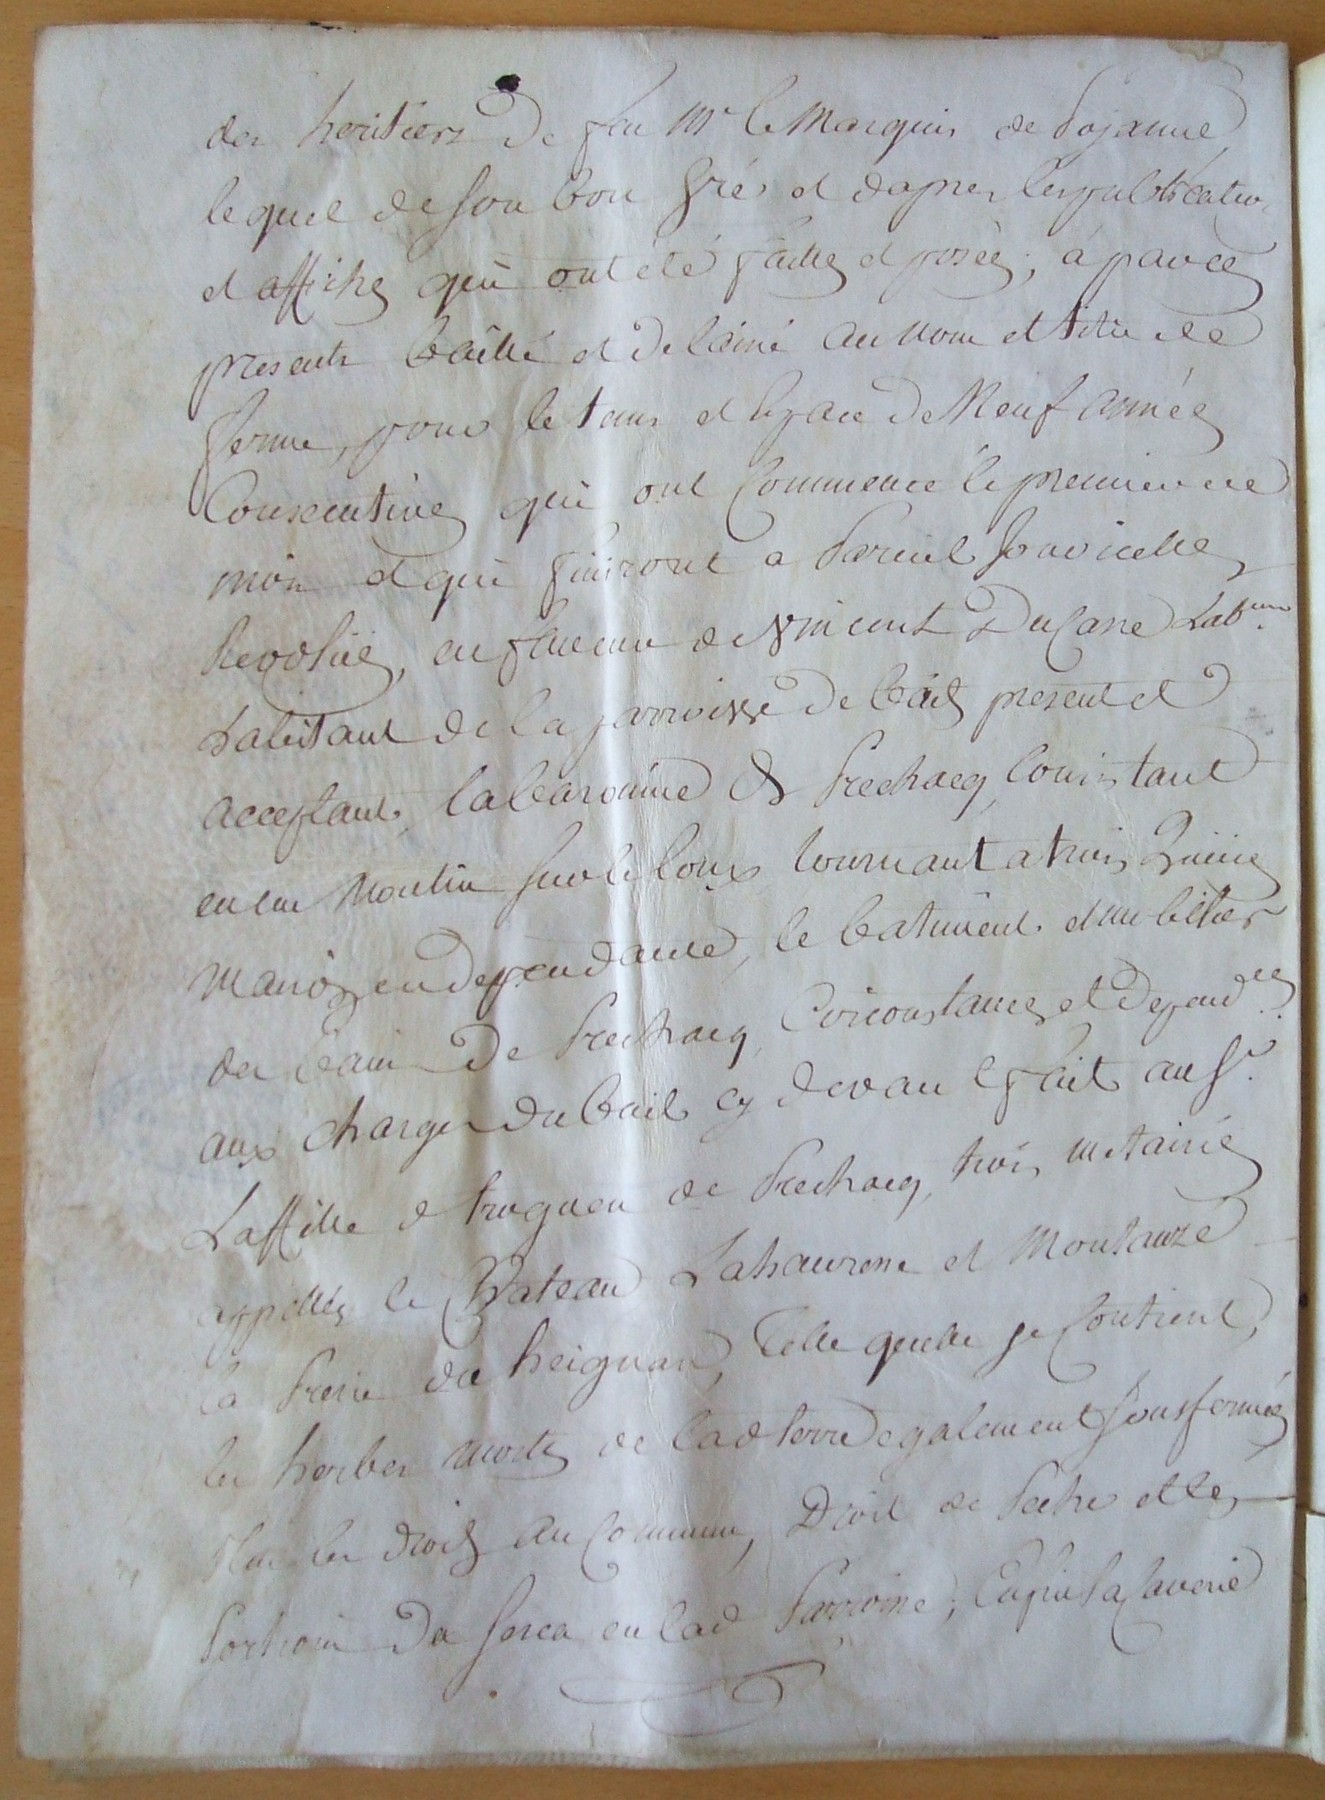 des heritiers de feu Mr le Marquis de Pojanne
lequel de son bon gré et dapres les publication
et affiches qui ont été faittes et posées, á par ces
presents baillé et delaissé au nom et titre de
ferme, pour le tems et espace de Neuf années
Consecutives qui ont Commencé le premier de ce
mois et qui finiront a Pareil jour icelles
Revolües, en faveur de Vincent Ducasse Labeur
habitant de la parroisse de bais present et
acceptant, la baronnie de Prechacq, Consistant
en un Moulin sur le Loux tournant a trois
en dependante, le batiment et
des bains de Prechacq, Circonstances et dependces
aux charges du bail cy devant fait au Sr
Laffitte de Prechacq, trois metairies
appellées le Chateau Lahaurene et Montauzé
la Prerie de heignan, telle quelle se Contient,
les herbes mortes de lad terre egalement sousfermées
plus les droits au Commun, Droit de Peche et les
Portions du serca en lad Parroisse,